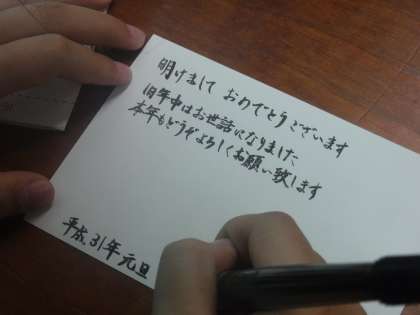 明けまして おめでとうございます
旧年中はお世話になりました
本年もどうぞよろしくお願い致します
平成31年 元旦